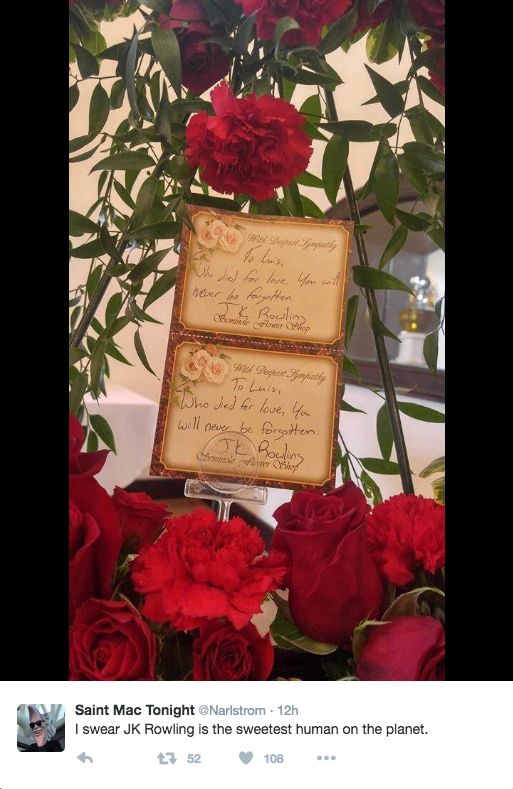 With Deepest Sympathy
To Luis,
Who died for love. You will
never be forgotten
J K Rowling
Seminole Flower Shop
With Deepest Sympathy
To Luis,
Who died for love, You
will never be forgotten.
J K Rowling
Seminole Flower Shop
Saint Mac Tonight @Narlstrom · 12h
I swear JK Rowling is the sweetest human on the planet.
52 108